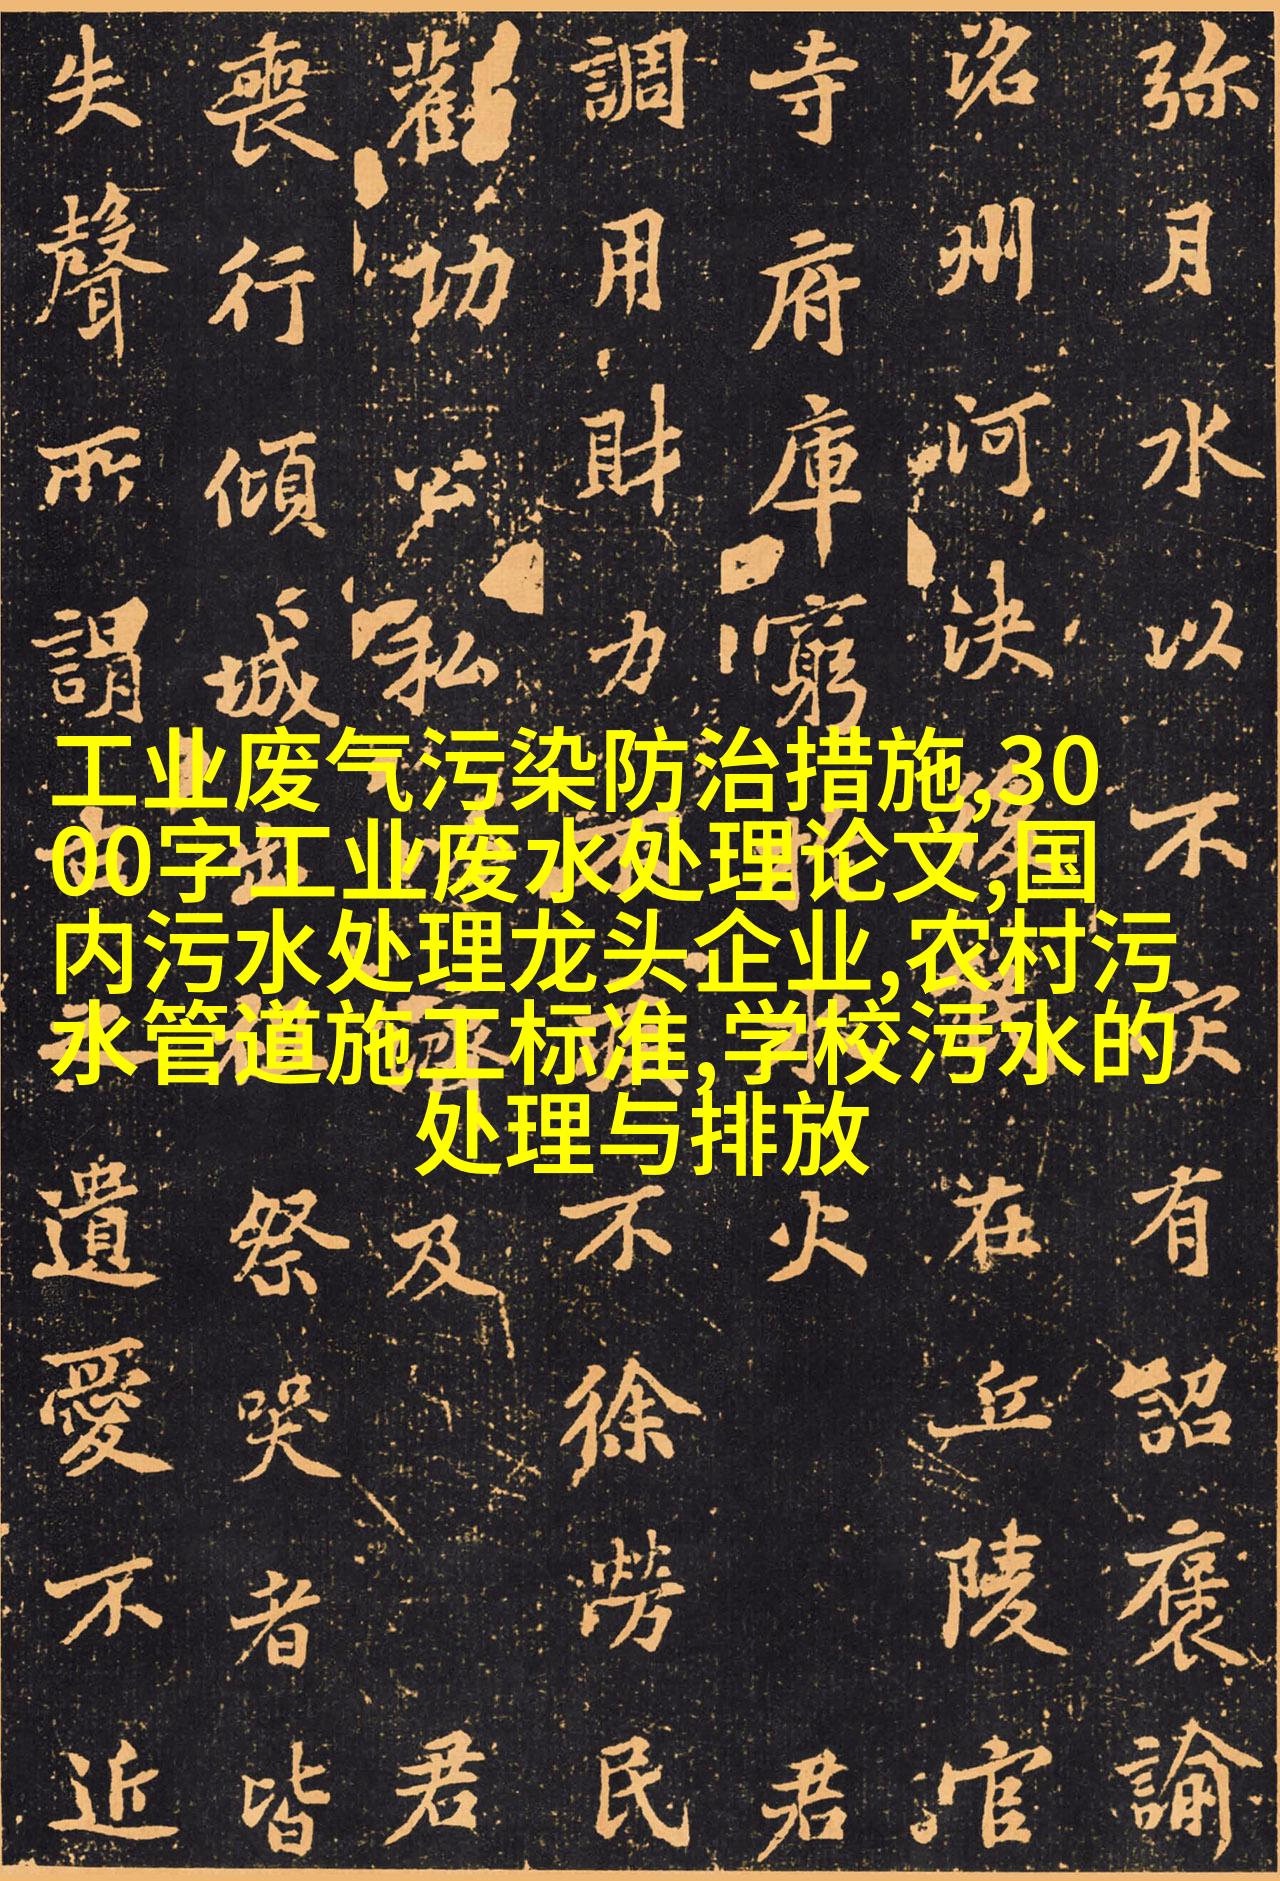 工业废气污染防治措施,30
00字工业废水处理论文,国
内污水处理龙头企业,农村污
水管道施工标准,学校污水的
处理与排放
弥月水以不灾有詔褒諭
洺州河決後在丘陵官
寺府庫窮水火君
調用財力不不徐勞民
勸功公私及君
喪行傾城祭哭者皆
失聲所謂遺愛不近